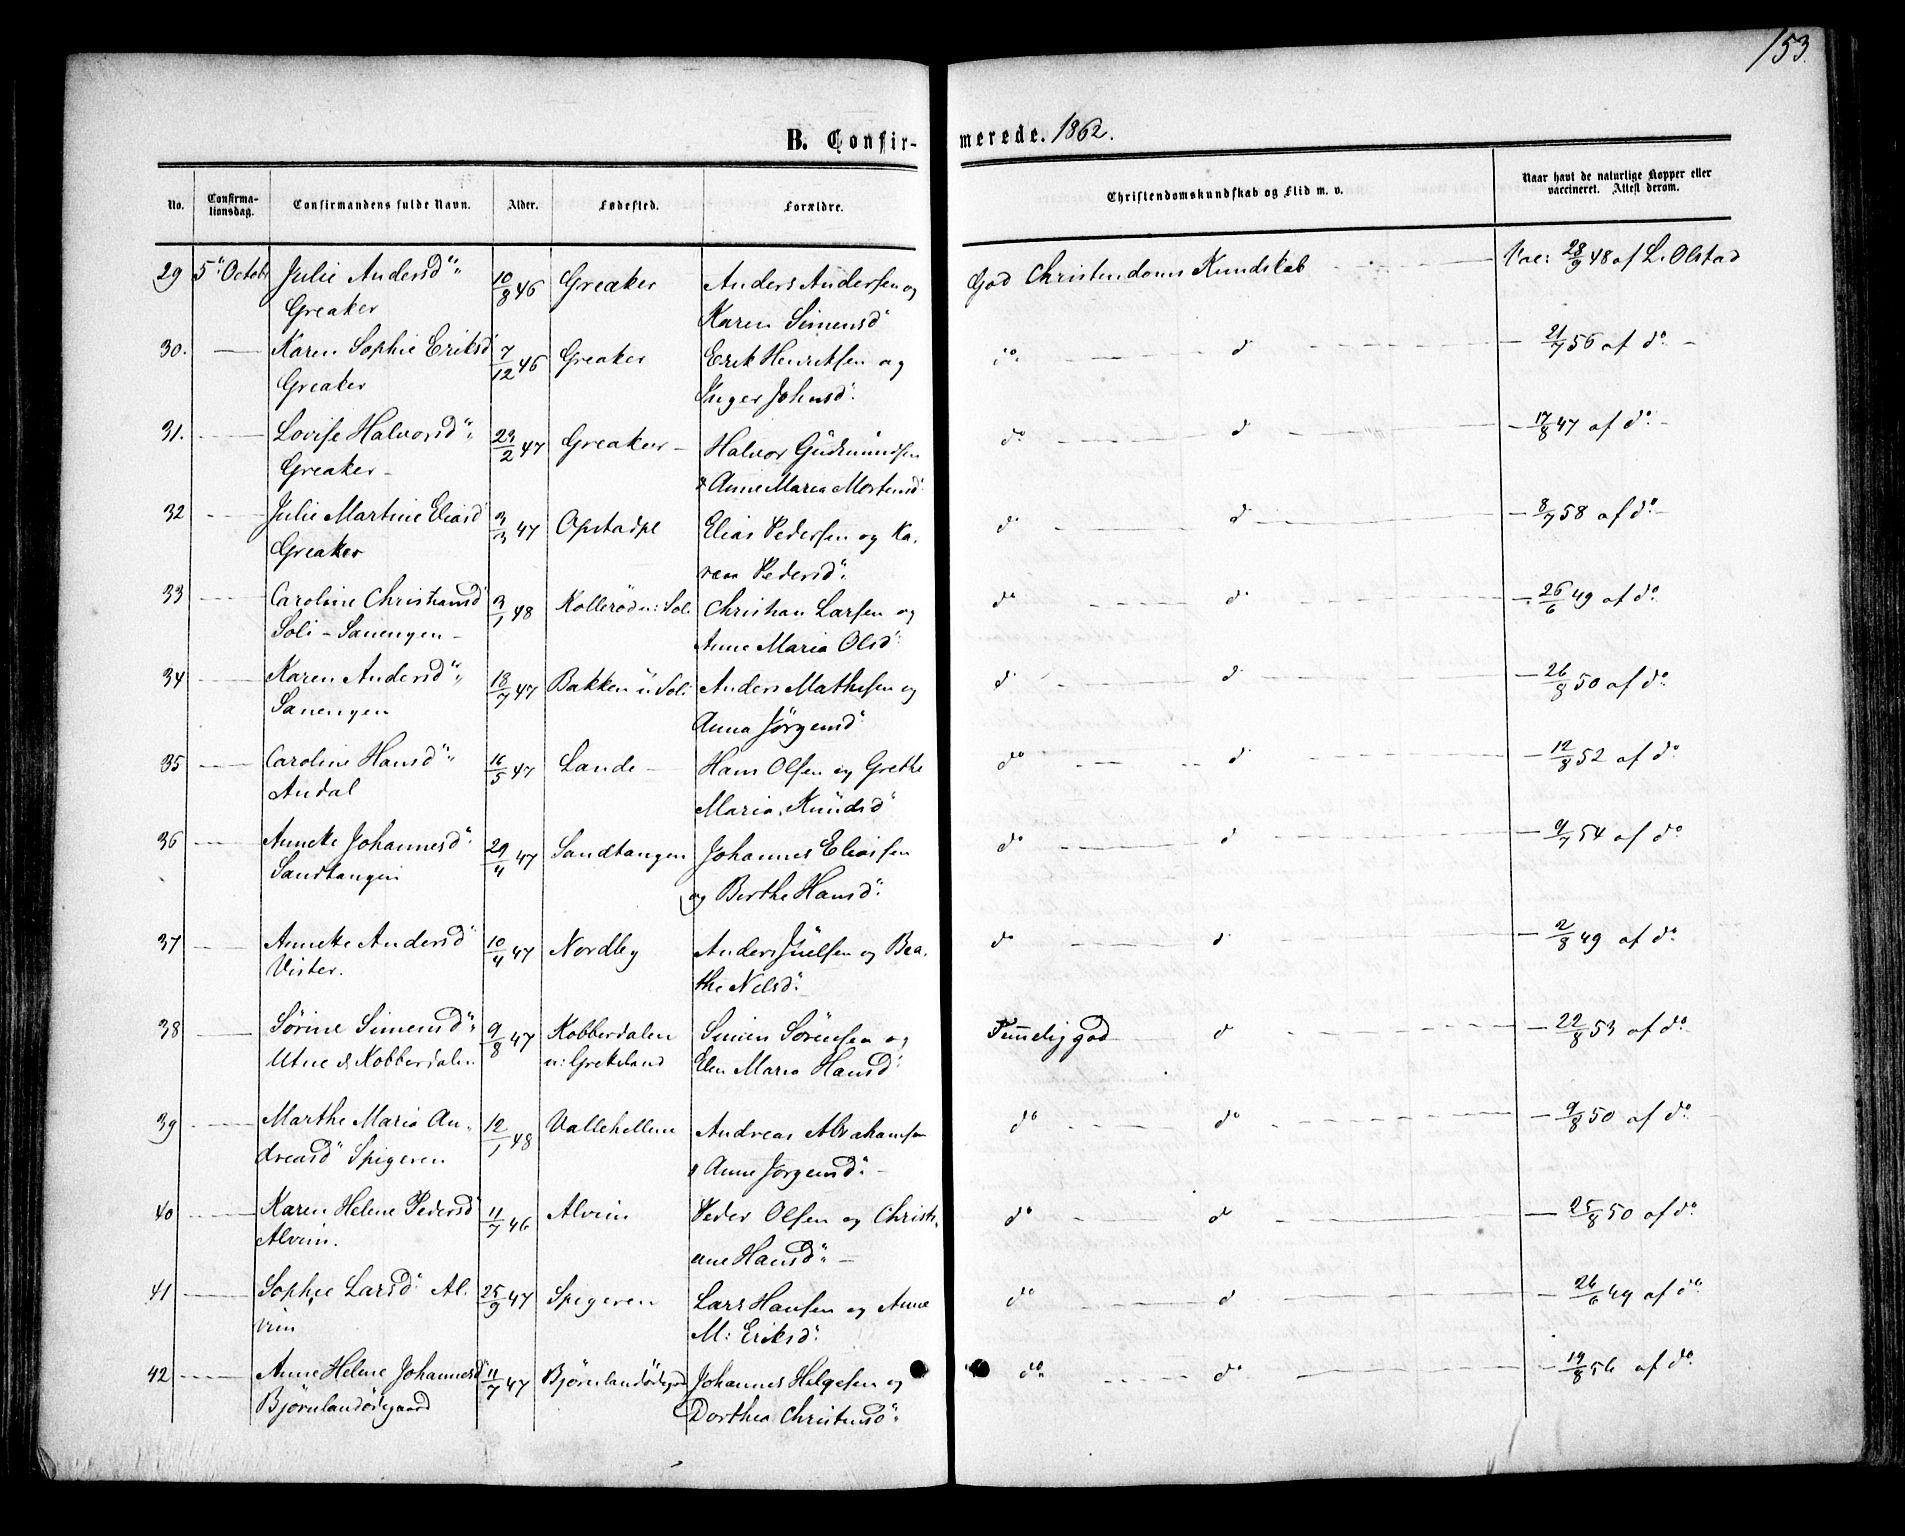 153.
B. Confirmerede. 1862.
No. Confirmationsdag. Confirmandens fulde Navn. Alder. Fødested. Forældre. Christendomskundskab og Flid m. v. Naar havt de naturlige Kopper eller vaccineret. Attest derom.
29 5" Octobr Julie Andersd" 10/8 46 Greaker Anders Andersen og God Christendoms Kundskab Vac: 28/9 48 af L. Olstad
Greaker Karen Simensd"
30. — Karen Sophie Eriksd 7/12 46 Greaker Erik Henriksen og do d 21/7 56 af do
Greaker Inger Johnsd:
31. — Lovise Halvorsd" 23/2 47 Greaker Halvor Gudmundsen do d 17/8 47 af do
Greaker & Anne Maria Mortensd
32 — Julie Martine Eliasd 3/3 47 Opstadpl Elias Pedersen og Ka- do d 8/7 58 af do
Greaker ren Pedersd"
33 — Caroline Christiansd 3/1 48 Kollerød u: Soli Christian Larsen og do do 26/6 49 af do
Soli - Sanengen Anne Maria Olsd"
34 — Karen Andersd" 18/7 47 Bakken u Soli Anders Mathisen og d d 26/8 50 af do
Sanengen Anna Jörgensd"
35 — Caroline Hansd" 16/5 47 Lande Hans Olsen og Grethe do d 12/8 52 af do
Andal Maria Knudsd"
36 — Anneke Johannesd" 29/4 47 Sandtangen Johannes Eliassen do d 9/7 54 af do
Sandtangen og Berthe Hansd"
37 — Anneke Andersd 10/4 47 Nordby Anders Juelsen og Bea- do d 2/8 49 af do
Vister. the Nilsd"
38 — Sørine Simensd" 9/8 47 Kobberdalen Simen Sörensen og Temmelig god d 22/8 53 af do
Utne & Kobberdalen u: Grekeland Elen Maria Hansd"
39 — Marthe Maria An- 12/1 48 Vallehellene Andreas Abrahamsen do do 9/8 50 af do
dreasd" Spigeren & Anne Jørgensd"
40 — Karen Helene Pedersd 11/7 46 Alvim Peder Olsen og Christi- do do 25/8 50 af do
Alvim. ane Hansd"
41 — Sophie Larsd" Al- 25/9 47 Spigeren Lars Hansen og Anne do d 26/6 49 af do
vim M: Eriksd"
42 — Anne Helene Johannesd 11/7 47 Bjørnlandødegaard Johannes Helgesen og do do 19/8 56 af do
Bjørnlandødegaard Dorthea Christensd"